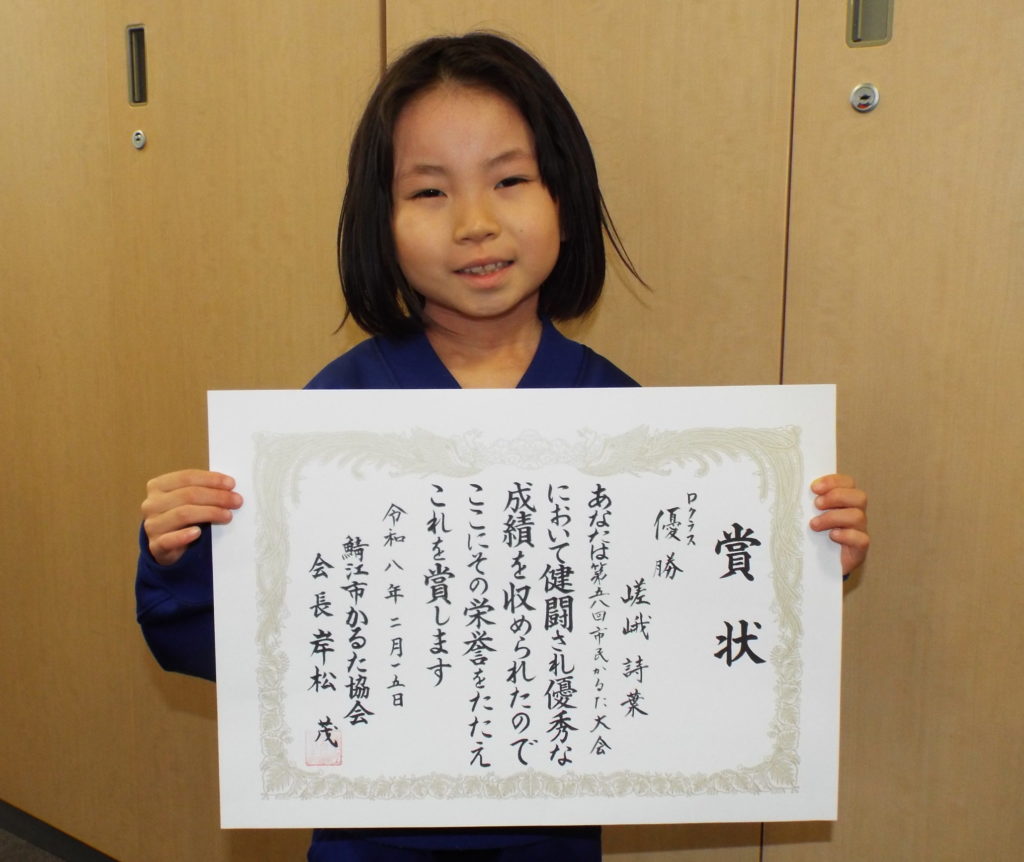 賞状
ロクラス
優勝
嵯峨 詩葉
あなたは第五八回市民かるた大会
において健闘され優秀な
成績を収められたので
ここにその栄誉をたたえ
これを賞します
令和八年二月一五日
鯖江市かるた協会
会長 岸松 茂